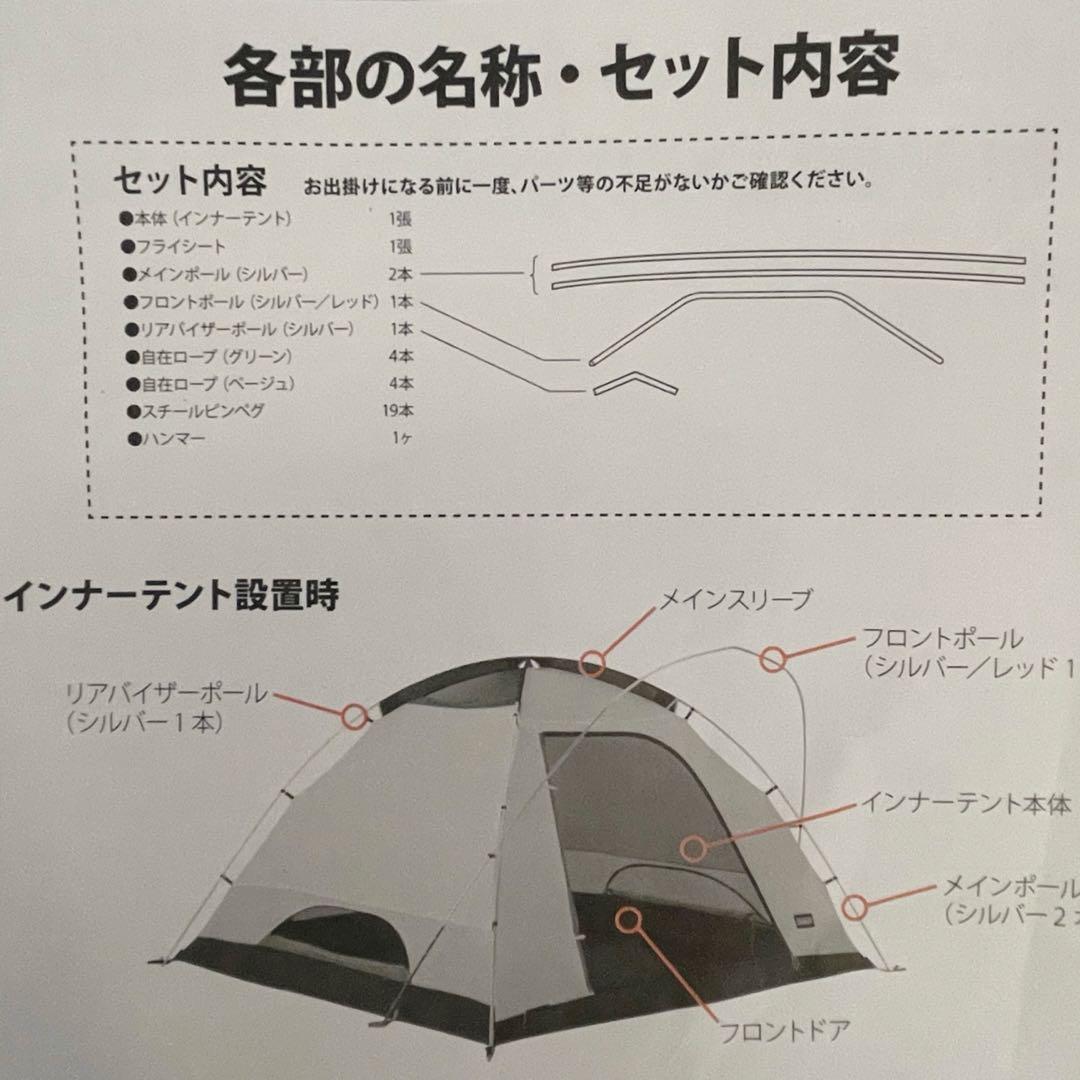 各部の名称・セット内容
セット内容 お出掛けになる前に一度、パーツ等の不足がないかご確認ください。
●本体（インナーテント） 1張
●フライシート 1張
●メインポール（シルバー） 2本
●フロントポール（シルバー／レッド） 1本
●リアバイザーポール（シルバー） 1本
●自在ロープ（グリーン） 4本
●自在ロープ（ベージュ） 4本
●スチールピンペグ 19本
●ハンマー 1ヶ
インナーテント設置時
メインスリーブ
フロントポール
（シルバー／レッド1
リアバイザーポール
（シルバー1本）
インナーテント本体
メインポール
（シルバー2
フロントドア